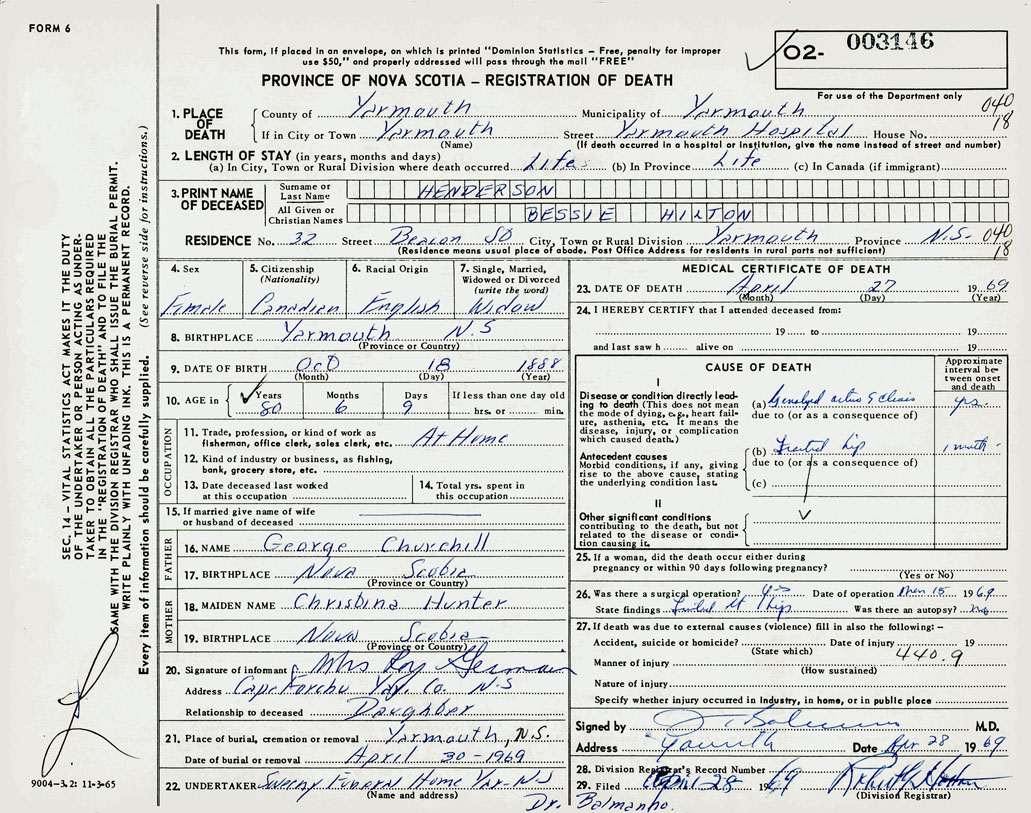 FORM 6
This form, if placed in an envelope, on which is printed "Dominion Statistics – Free, penalty for improper
use $50," and properly addressed will pass through the mail "FREE"
02- 003146
PROVINCE OF NOVA SCOTIA – REGISTRATION OF DEATH
For use of the Department only
040
18
1. PLACE OF DEATH
County of Yarmouth Municipality of Yarmouth
If in City or Town Yarmouth Street Yarmouth Hospital House No.
(Name) (If death occurred in a hospital or institution, give the name instead of street and number)
2. LENGTH OF STAY (in years, months and days)
(a) In City, Town or Rural Division where death occurred Life (b) In Province Life (c) In Canada (if immigrant)
3. PRINT NAME OF DECEASED
Surname or Last Name HENDERSON
All Given or Christian Names BESSIE HILTON
RESIDENCE No. 32 Street Beacon St City, Town or Rural Division Yarmouth Province N.S. 040
(Residence means usual place of abode. Post Office Address for residents in rural parts not sufficient) 18
4. Sex
Female
5. Citizenship (Nationality)
Canadian
6. Racial Origin
English
7. Single, Married, Widowed or Divorced (write the word)
Widow
8. BIRTHPLACE Yarmouth N.S
(Province or Country)
9. DATE OF BIRTH Oct 18 1888
(Month) (Day) (Year)
10. AGE in Years Months Days If less than one day old
80 6 9 hrs. or min.
OCCUPATION
11. Trade, profession, or kind of work as fisherman, office clerk, sales clerk, etc. At Home
12. Kind of industry or business, as fishing, bank, grocery store, etc.
13. Date deceased last worked at this occupation
14. Total yrs. spent in this occupation
15. If married give name of wife or husband of deceased
FATHER
16. NAME George Churchill
17. BIRTHPLACE Nova Scotia
(Province or Country)
MOTHER
18. MAIDEN NAME Christina Hunter
19. BIRTHPLACE Nova Scotia
(Province or Country)
20. Signature of informant Mrs Roy
Address Cape Forchu Yar. Co. N.S
Relationship to deceased Daughter
21. Place of burial, cremation or removal Yarmouth, N.S.
Date of burial or removal April 30-1969
22. UNDERTAKER Sweeny Funeral Home Yar. N.S
(Name and address)
Dr. Balmanno.
MEDICAL CERTIFICATE OF DEATH
23. DATE OF DEATH April 27 1969
(Month) (Day) (Year)
24. I HEREBY CERTIFY that I attended deceased from:
19 to 19
and last saw h alive on 19
CAUSE OF DEATH
Approximate interval between onset and death
I
Disease or condition directly leading to death (This does not mean the mode of dying, e.g., heart failure, asthenia, etc. It means the disease, injury, or complication which caused death.)
(a) yrs.
due to (or as a consequence of)
Antecedent causes
Morbid conditions, if any, giving rise to the above cause, stating the underlying condition last.
(b) hip 1 month
due to (or as a consequence of)
(c)
II
Other significant conditions
contributing to the death, but not related to the disease or condition causing it.
25. If a woman, did the death occur either during
pregnancy or within 90 days following pregnancy?
(Yes or No)
26. Was there a surgical operation? yes Date of operation 15 1969
State findings hip Was there an autopsy? no
27. If death was due to external causes (violence) fill in also the following:–
Accident, suicide or homicide? Date of injury 19
(State which) 440.9
Manner of injury
(How sustained)
Nature of injury
Specify whether injury occurred in industry, in home, or in public place
Signed by M.D.
Address Yarmouth Date Apr 28 1969
28. Division Registrar's Record Number
29. Filed April 28 1969
(Division Registrar)
SEC. 14 – VITAL STATISTICS ACT MAKES IT THE DUTY
OF THE UNDERTAKER OR PERSON ACTING AS UNDER-
TAKER TO OBTAIN ALL THE PARTICULARS REQUIRED
IN THE "REGISTRATION OF DEATH" AND TO FILE THE
SAME WITH THE DIVISION REGISTRAR WHO SHALL ISSUE THE BURIAL PERMIT.
WRITE PLAINLY WITH UNFADING INK. THIS IS A PERMANENT RECORD.
Every item of information should be carefully supplied. (See reverse side for instructions.)
9004-3.2: 11-3-65